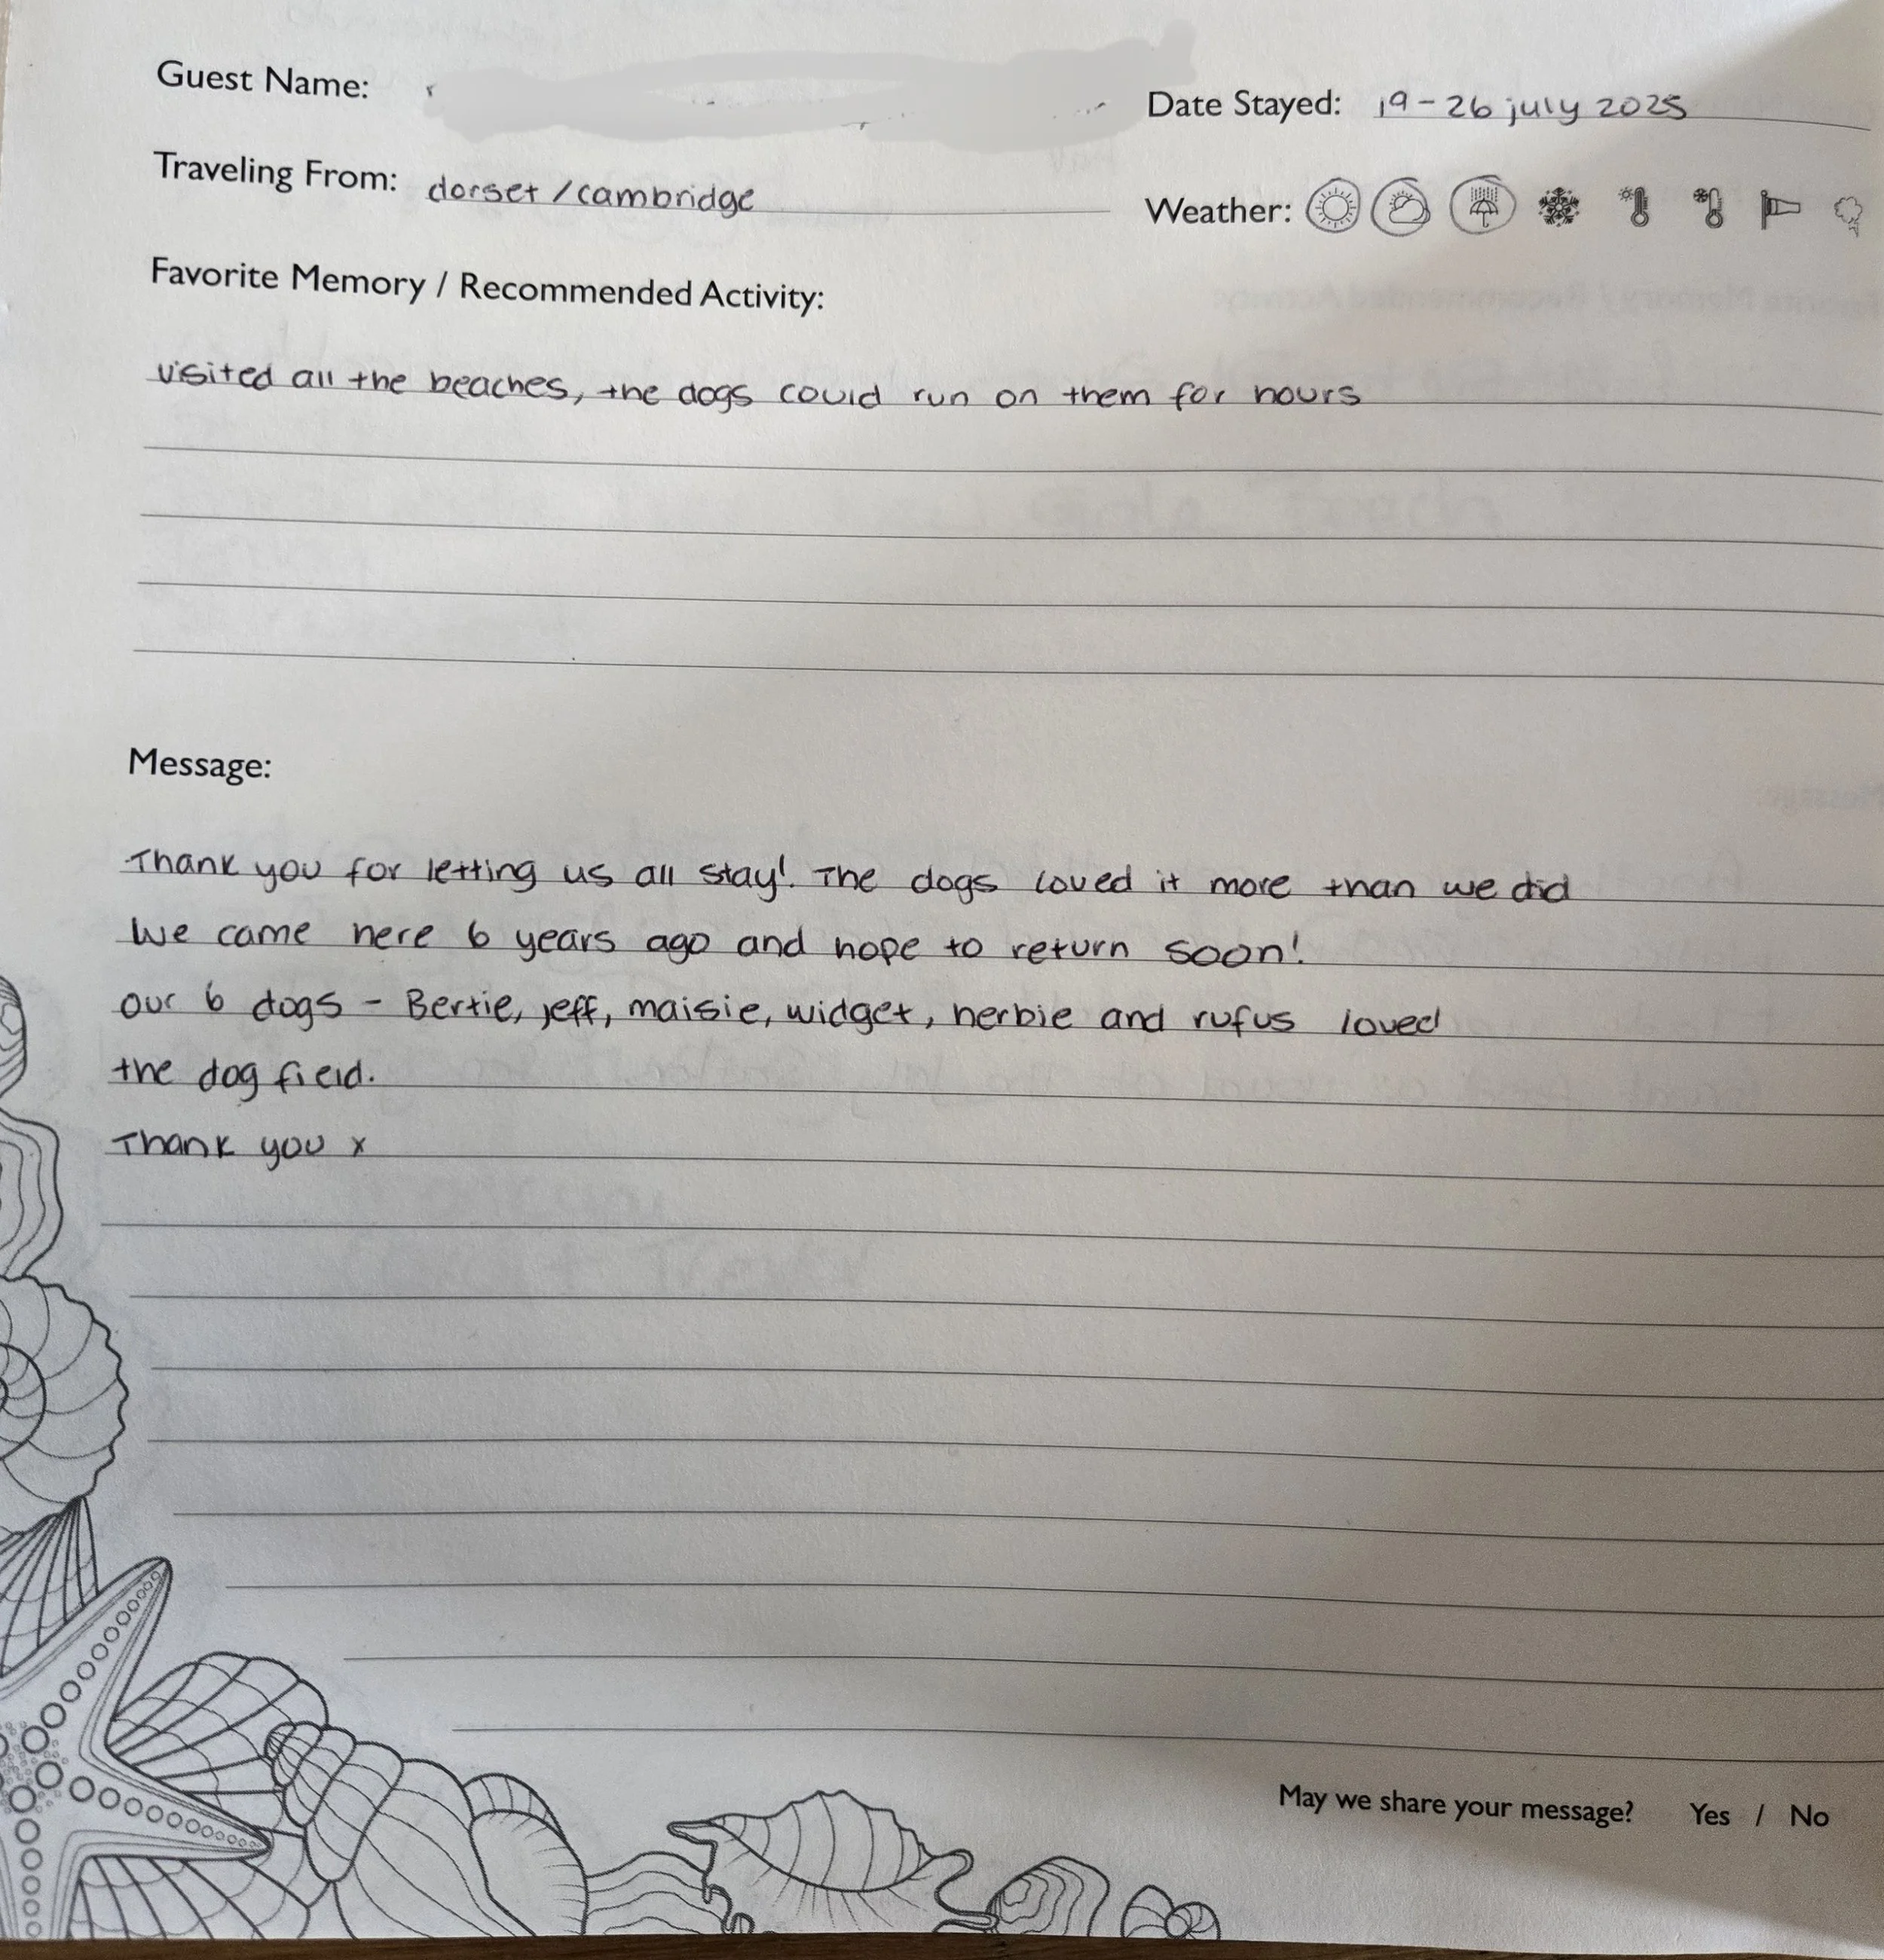 Guest Name:
Date Stayed: 19-26 july 2025
Traveling From: dorset / cambridge
Weather:
Favorite Memory / Recommended Activity:
visited all the beaches, the dogs could run on them for hours
Message:
Thank you for letting us all stay! The dogs loved it more than we did
We came here 6 years ago and hope to return soon!
our 6 dogs - Bertie, jeff, maisie, widget, herbie and rufus loved
the dog field.
Thank you x
May we share your message? Yes / No